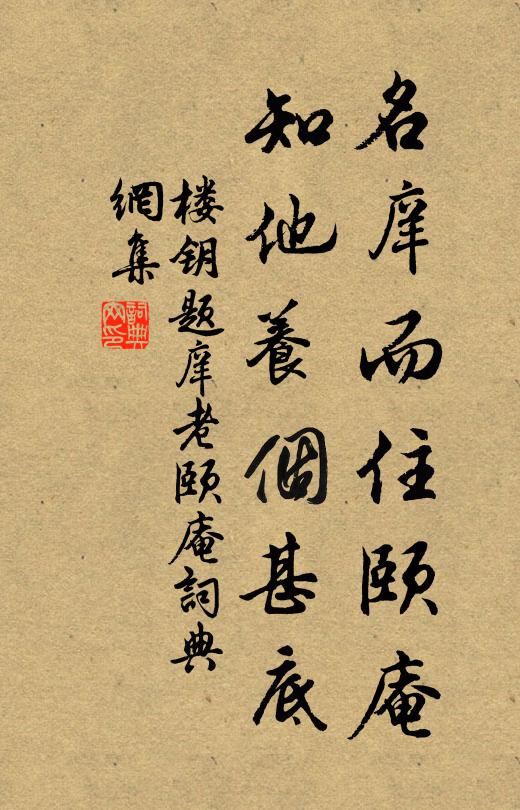 名庠而住頤庵
知他養個甚底
楼钥题庠老颐庵詞典
網集
詞典
网印